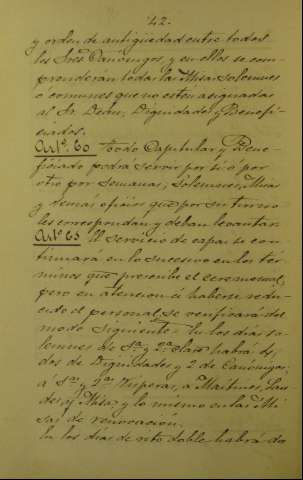 42.
y orden de antigüedad entre todos
los Sres Canónigos, y en ellos se com-
prenderán todas las Misas solemnes
o comunes que no estén asignadas
al Sr. Deán, Dignidades y Benefi-
ciados.
Artº. 60 Todo Capitular y Bene-
ficiado podrá servir por sí ó por
otro por Semanas, Solemnes, Misas
y demás oficios que por su turno
les correspondan y deban levantar.
Artº 65 El servicio de capas se con-
tinuará en lo sucesivo en los tér-
minos que prescribe el ceremonial,
pero en atención á haberse redu-
cido el personal se verificará del
modo siguiente = En los días so-
lemnes de 1ª. y 2ª. clase habrá
dos de Dignidades y 2 de Canónigos
á 1as. y 2as Vísperas, a Maitines, Lau-
des y Misa; y lo mismo en las Mi-
sas de renovación.
En los días de rito doble habrá dos